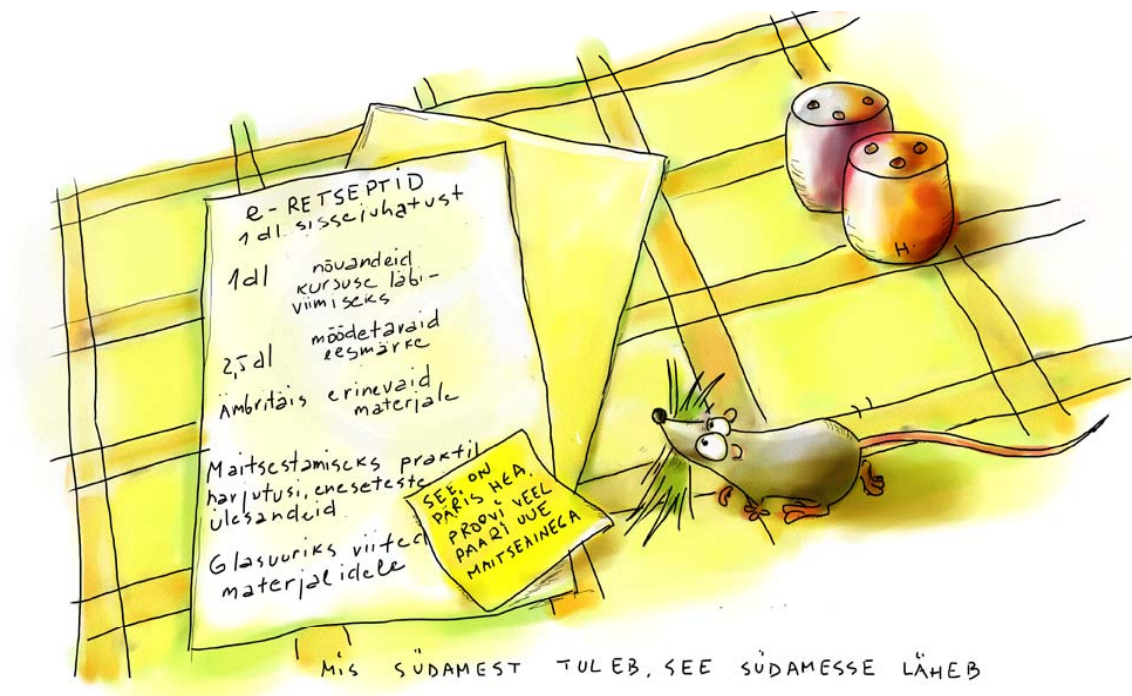 e-RETSEPTID
1 dl. sissejuhatust
1dl nõuandeid
kursuse läbi-
viimiseks
2,5dl mõõdetavaid
eesmärke
Ämbritäis erinevaid
materjale
Maitsestamiseks praktil
harjutusi, eneseteste
ülesandeid
Glasuuriks viited
materjalidele
SEE ON
PÄRIS HEA.
PROOVI VEEL
PAARI UUE
MAITSEAINEGA
H.
MIS SÜDAMEST TULEB, SEE SÜDAMESSE LÄHEB